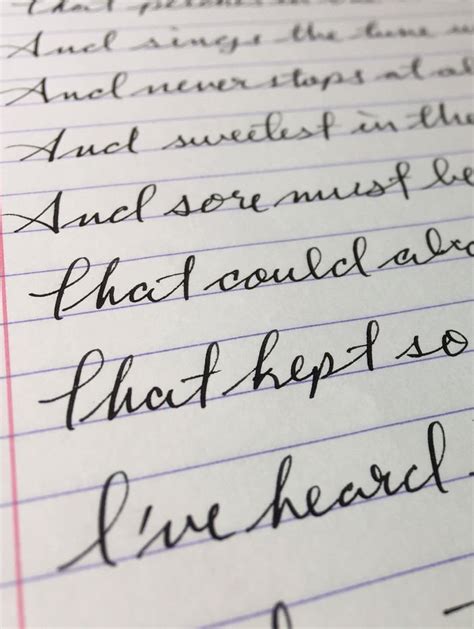 That perches in
And sings the tune w
And never stops at al
And sweetest in the
And sore must be
That could aba
That kept so
I've heard